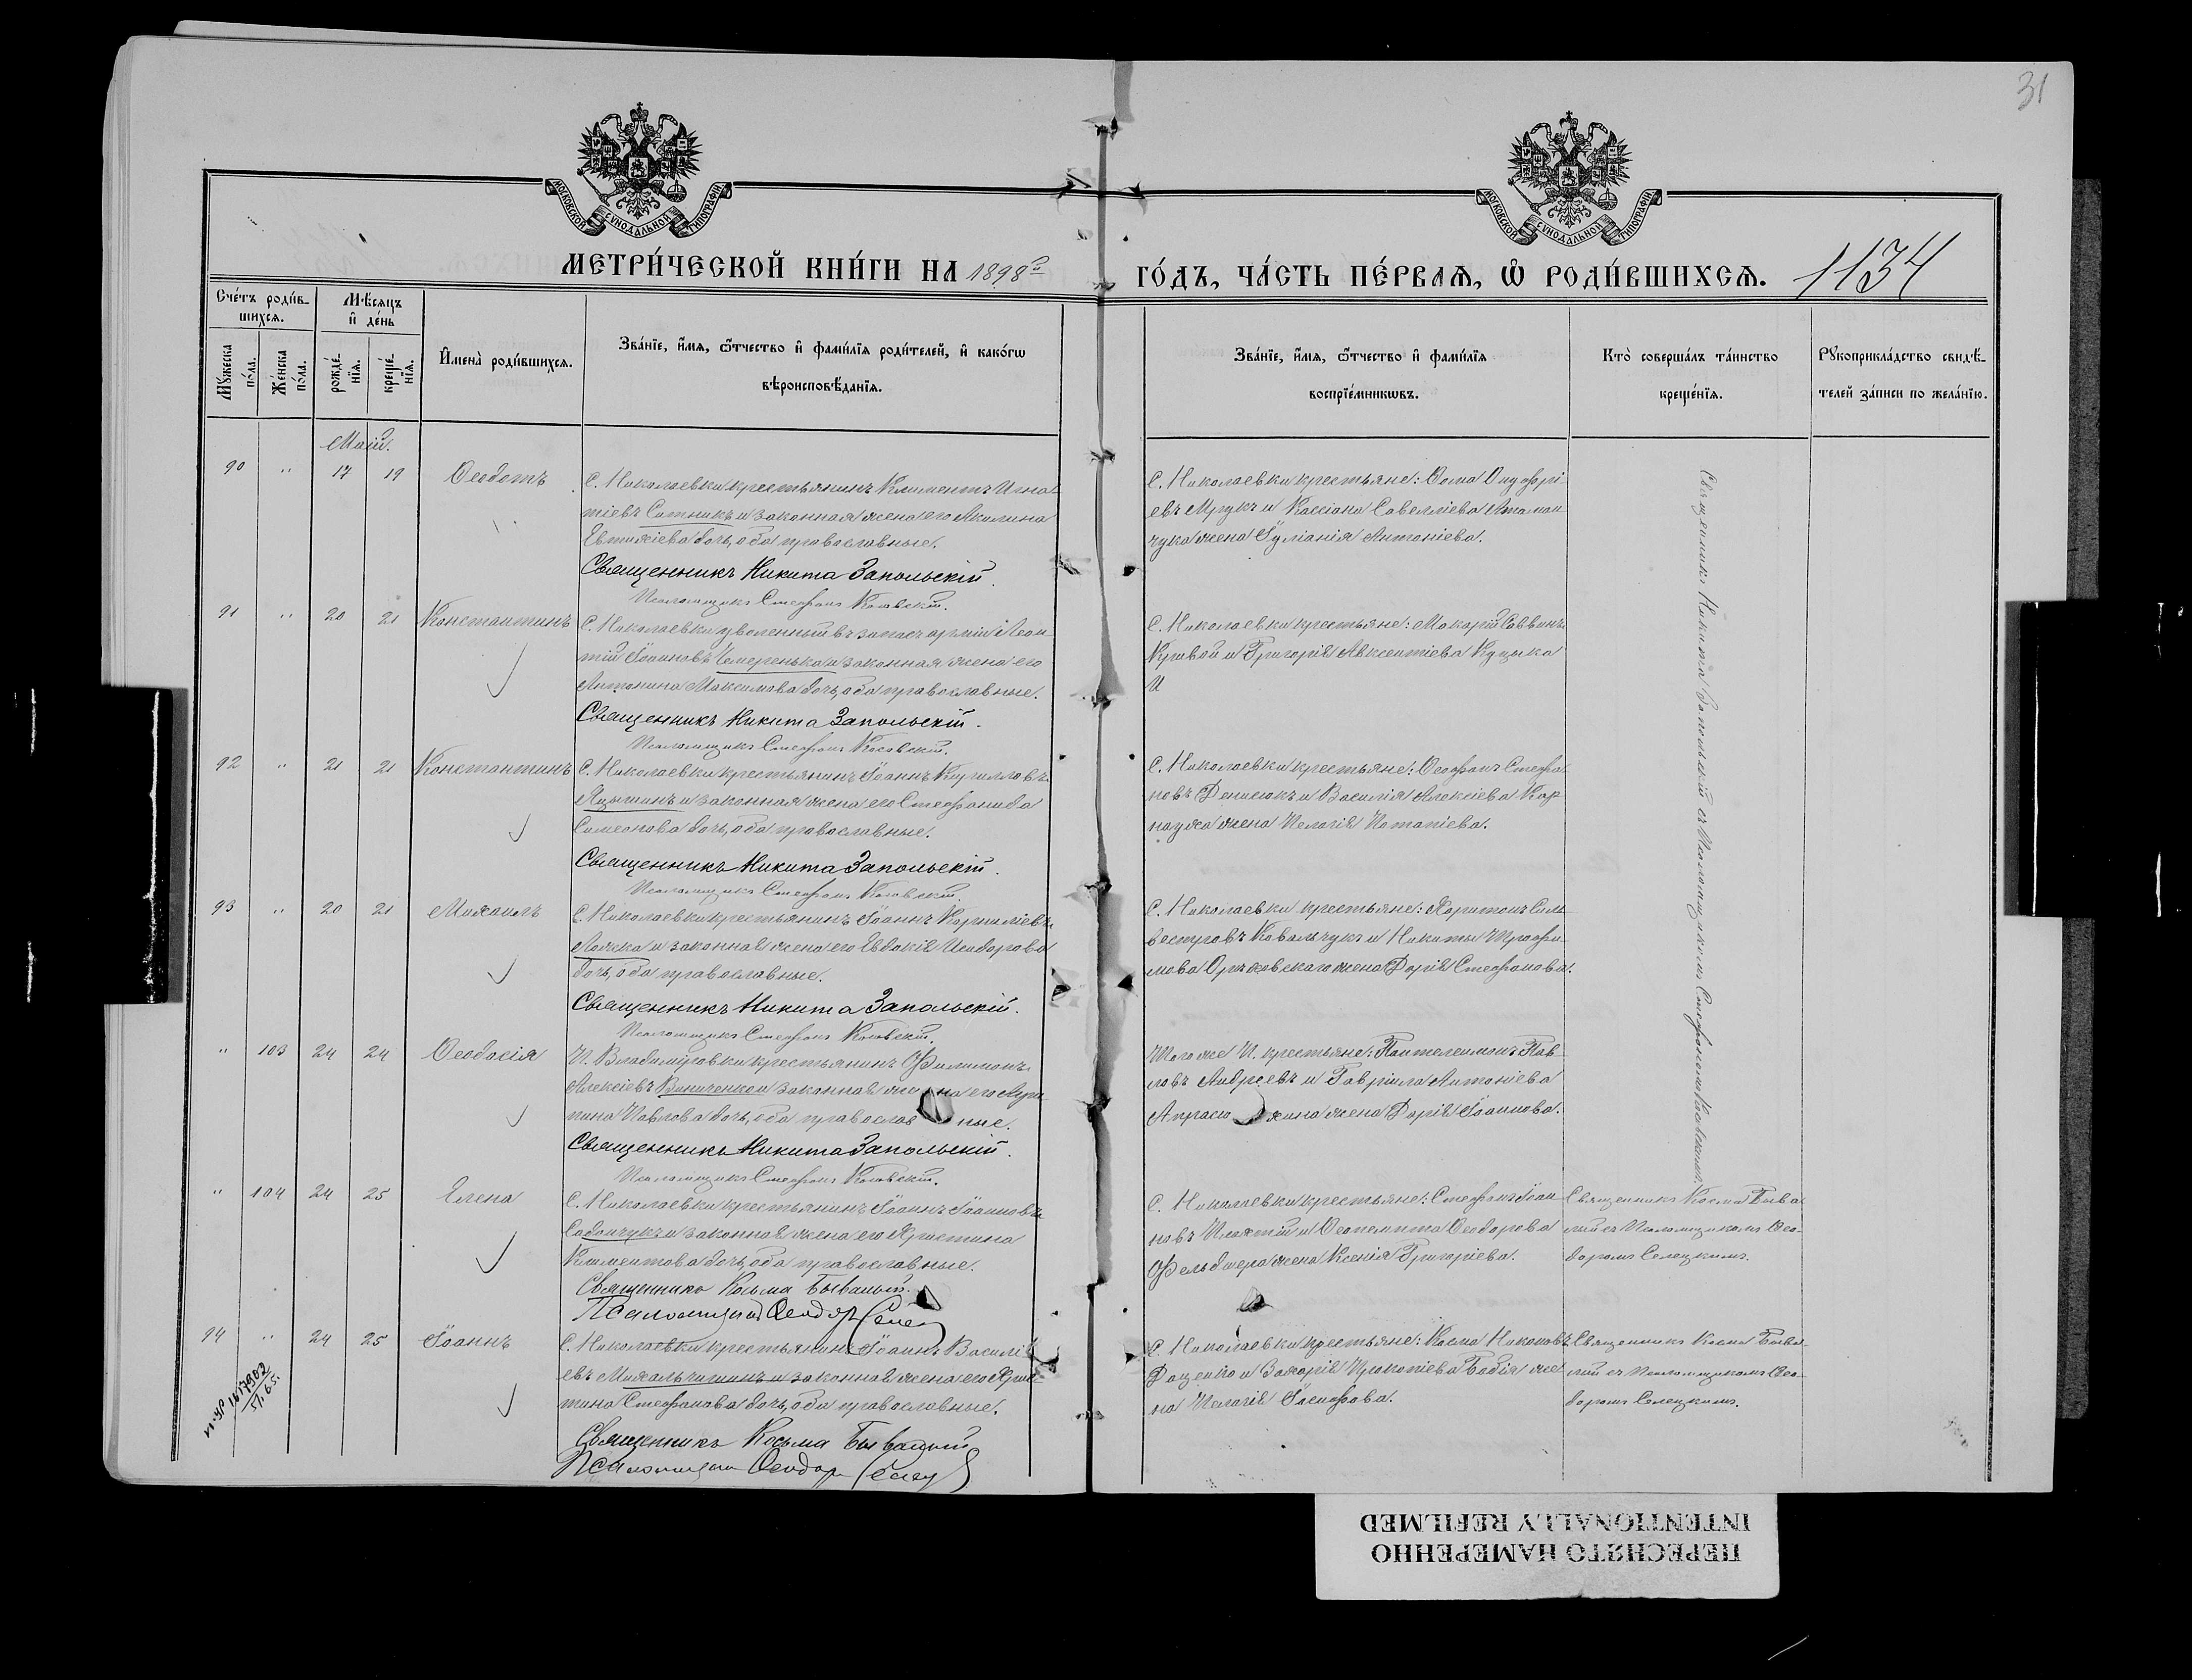 31
МОСКОВСКОЙ СѴНОДАЛЬНОЙ ТИПОГРАФІИ
МОСКОВСКОЙ СѴНОДАЛЬНОЙ ТИПОГРАФІИ
МЕТРИ́ЧЕСКОЙ КНИ́ГИ НА 1898 ГО́ДЪ, ЧА́СТЬ ПЕ́РВАѦ, Ѡ҆ РОДИ́ВШИХСѦ. 1134
Сче́тъ роди́вшихсѧ.
Мѣ́сяцъ и҆ де́нь
Мꙋ́жеска по́ла.
Же́нска по́ла.
рожде́нїѧ.
креще́нїѧ.
И҆мена̀ роди́вшихсѧ.
Зва́нїе, и҆́мѧ, ѻ҆́тчество и҆ фами́лїѧ роди́телей, и҆ како́гѡ
вѣроисповѣ́данїѧ.
Зва́нїе, и҆́мѧ, ѻ҆́тчество и҆ фами́лїѧ
воспрїе́мникѡвъ.
Кто̀ соверша́лъ та́инство
креще́нїѧ.
Рꙋкоприкла́дство свидѣ́-
телей за́писи по жела́нїю.
Маій.
90 " 17 19 Ѳеодотъ
С. Николаевки крестьянинъ Климентъ Игна-
тіевъ Сотникъ и законная жена его Акилина
Евтихіева дочь, оба православные.
Священникъ Никита Запольскій.
Псаломщикъ Стефанъ Косовскій.
С. Николаевки крестьяне: Ѳома Онуфрі-
евъ Мрукъ и Кассіана Савелліева Атаман-
чука жена Іуліанія Антоніева.
91 " 20 21 Константинъ
С. Николаевки уволенный въ запасъ арміи Леон-
тій Іоанновъ Чемеренько и законная жена его
Антонина Максимова дочь, оба православные.
Священникъ Никита Запольскій.
Псаломщикъ Стефанъ Косовскій.
С. Николаевки крестьяне: Макарій Саввинъ
Кривой и Григорія Авксентіева Куцыка
И
92 " 21 21 Константинъ
С. Николаевки крестьянинъ Іоаннъ Кирилловъ
Яцышинъ и законная жена его Стефанида
Симеонова дочь, оба православные.
Священникъ Никита Запольскій.
Псаломщикъ Стефанъ Косовскій.
С. Николаевки крестьяне: Ѳеофанъ Стефа-
новъ Денисюкъ и Василія Алексіева Кар-
науха жена Пелагія Потапіева.
93 " 20 21 Михаилъ
С. Николаевки крестьянинъ Іоаннъ Корниліевъ
и законная жена его Евдокія Исидорова
дочь, оба православные.
Священникъ Никита Запольскій.
Псаломщикъ Стефанъ Косовскій.
С. Николаевки крестьяне: Харитонъ Силь-
вестровъ Ковальчукъ и Никиты Трофи-
мова Оржеховскаго жена Дарія Стефанова.
" 103 24 24 Ѳеодосія
П. Владиміровки крестьянинъ Филимонъ
Алексіевъ Винниченко и законная жена его Агри-
пина Павлова дочь, оба православные.
Священникъ Никита Запольскій.
Псаломщикъ Стефанъ Косовскій.
Того же П. крестьяне: Пантелеимонъ Пав-
ловъ Андреевъ и Гавріила Антоніева
жена Дарія Іоаннова.
Священникъ Никита Запольскій съ Псаломщикомъ Стефаномъ Косовскимъ.
" 104 24 25 Елена
С. Николаевки крестьянинъ Іоаннъ Іоанновъ
Садомчукъ и законная жена его Христина
Климентова дочь, оба православные.
Священникъ Косьма Бывалый.
Псаломщикъ Ѳеодоръ
С. Николаевки крестьяне: Стефанъ Іоан-
новъ и Ѳеопемпта Ѳеодорова
Фельдшера жена Ксенія Григоріева.
Священникъ Косма Быва-
лый съ Псаломщикомъ Ѳео-
доромъ Селецкимъ.
94 " 24 25 Іоаннъ
С. Николаевки крестьянинъ Іоаннъ Василі-
евъ Михальчишинъ и законная жена его Хрис-
тина Стефанова дочь, оба православные.
Священникъ Косьма Бывалый
Псаломщикъ Ѳеодоръ
С. Николаевки крестьяне: Косма Никоновъ
Доценко и Захарія Прокопіева Бабія же-
на Пелагія Іосифова.
Священникъ Косма Быва-
лый съ Псаломщикомъ Ѳео-
доромъ Селецкимъ.
ПЕРЕСНЯТО НАМЕРЕННО
INTENTIONALLY REFILMED